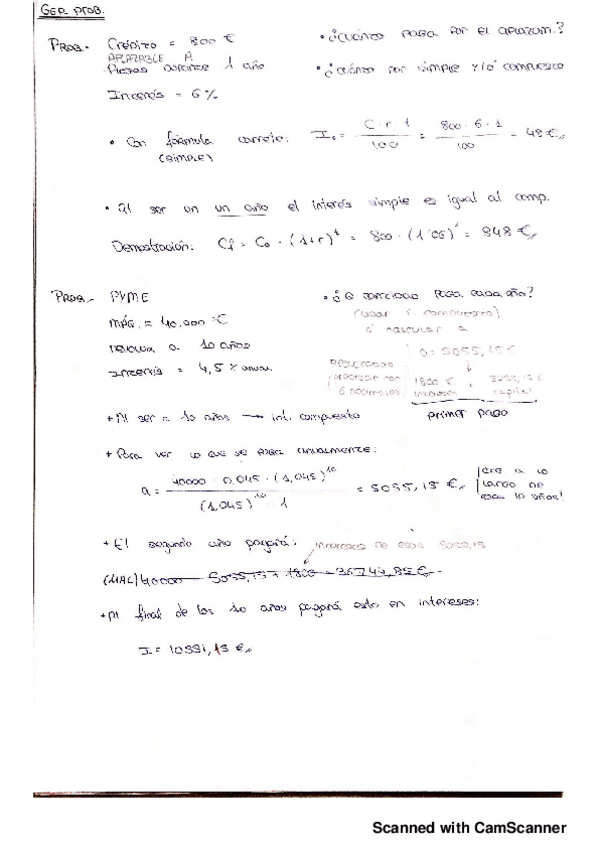 GER. PROB.
PROB.- Crédito = 800 € • ¿Cuánto paga por el aplazam.?
APLAZABLE A
Plazos durante 1 año • ¿Cuánto por simple y/o compuesto
Interés = 6%
• Con fórmula carrejo: I₁ = C · r · t / 100 = 800 · 6 · 1 / 100 = 48 €
(simple)
• Al ser en un año el interés simple es igual al comp.
Demostración: Cf = C₀ · (1+r)^t = 800 · (1'06)^1 = 848 €
PROB.- PYME • ¿Q cantidad paga cada año?
máq. = 40.000 € (usar i compuesto)
devolver a 10 años ó calcular a
Interés = 4,5 % anual a = 5055,15 €
1800 € intereses
capital
+ Al ser = 10 años → int. compuesto primer pago
+ Para ver lo que se paga anualmente:
a = 40000 · 0,045 · (1,045)^10 / (1,045)^10 - 1 = 5055,15 €
largo de
esos 10 años!
+ El segundo año pagará: intereses de esos 5055,15
(MAL) 40000 - 5055,15 + 1800 = 36744,85 €
+ Al final de los 10 años pagará esto en intereses:
I = 10551,13 €
Scanned with CamScanner